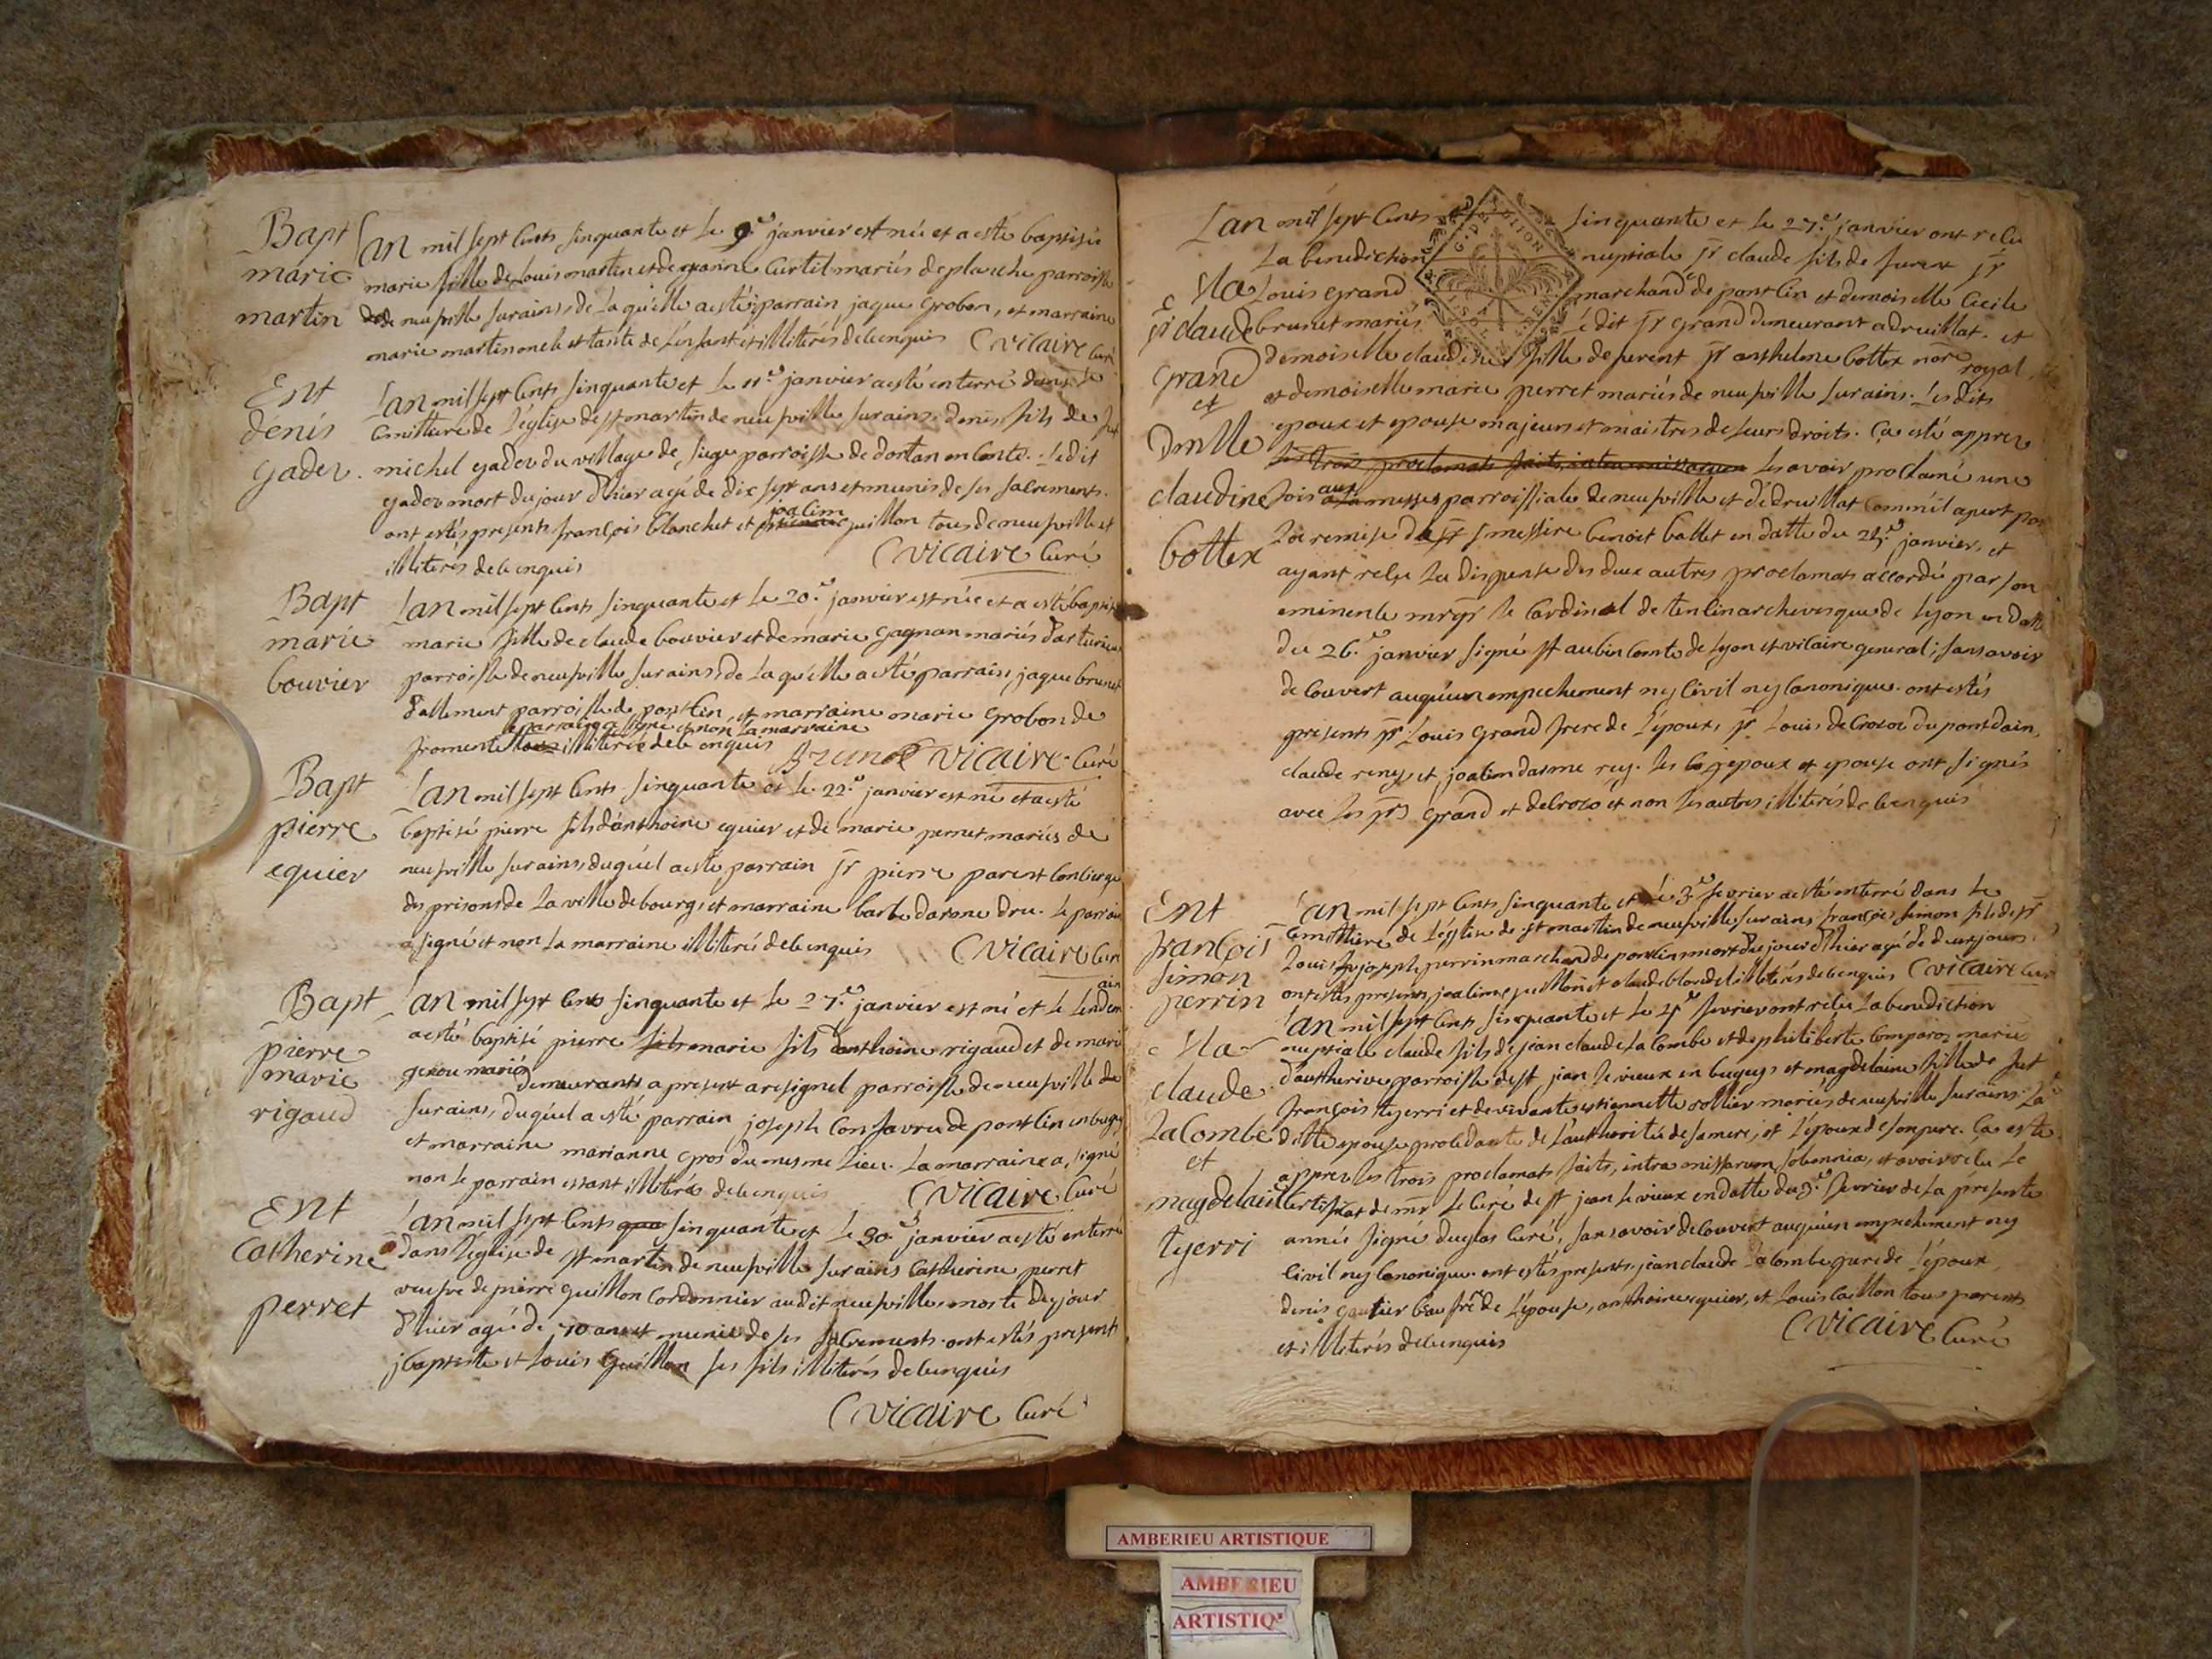 Bapt
marie
martin
Lan mil sept cents sinquante et le 9e janvier est née et a esté baptisée
marie fille de Louis martin et de jeanne Curtil mariés de planche parroisse
de neufville surains, de la qu'elle a esté parrain jaque Grobon, et marraine
marie martin oncle et tante de l'enfant et illiterés de ce enquis Cvicaire Curé
Ent
denis
gader.
Lan mil sept cents sinquante et le 11e janvier a esté enterré dans le
cemittiere de l'église de st martin de neufville surains denis fils de fut
michel gader du village de siege parroisse de dortan en conté. Ledit
gader mort du jour d'hier agé de dix sept ans et munis de ses sacrements.
ont estés présents françois blanchet et joalim guillon tous de neufville et
illiterés de ce enquis
Cvicaire Curé
Bapt
marie
bouvier
Lan mil sept cents sinquante et le 20e janvier est née et a esté baptisée
marie fille de claude bouvier et de marie gagnan mariés
parroisse de neufville surains, de la qu'elle a esté parrain, jaque brunet
d'allement parroisse de pontcin, et marraine marie Grobon de
le parrain a signé et non la marraine
fromente illiterée de ce enquis Brunet Cvicaire Curé
Bapt
pierre
equier
Lan mil sept cents sinquante et le 22e janvier est né et a esté
baptisé pierre fils d'anthoine equier et de marie perret mariés de
neufville surains, duqu'el a esté parrain sr pierre parent concierge
des prisons de la ville de bourg, et marraine barbe darane dru. Le parrain
a signé et non la marraine illiterée de ce enquis Cvicaire Curé
Bapt
pierre
marie
rigaud
Lan mil sept cents sinquante et le 27e janvier est né et le lendemain
a esté baptisé pierre marie fils d'anthoine rigaud et de marie
genou mariés
demeurants a present a resignel parroisse de neufville
surains, duqu'el a esté parrain joseph de pontcin en bugey
et marraine marianne gros du mesme lieu. La marraine a signé
non le parrain essant illiterés de ce enquis Cvicaire Curé
Ent
Catherine
perret
Lan mil sept cents sinquante et le 30e janvier a esté enterré
dans l'église de st martin de neufville surains Catherine perret
veufve de pierre guillon cordonnier audit neufville, morte du jour
d'hier agée de 70 ans et munie de ses sacrements. ont estés présents
jbaptiste et Louis Guillon ses fils illiterés de ce enquis
Cvicaire Curé
G. D. LYON
Lan mil sept cents sinquante et le 27e janvier ont reçu
La benediction nuptiale sr claude fils de sr
Louis grand marchand de pontcin et demoiselle Cecile
brunet mariés ledit sr grand demeurant a druillat. et
demoiselle claudine fille de sr anthelme bottex nore royal
et demoiselle marie perret mariés de neufville surains. Les dits
epoux et epouse majeurs et maistres de leurs droits. Ca esté apprez
les trois proclamats faits, intra missarum les avoir proclamé une
fois aux messes parroissiales de neufville et de druillat comm'il apert par
la remise de messire benoit ballet en datte du 25e janvier, et
ayant reçu la dispense des deux autres proclamats accordé par son
eminence mrgr le cardinal de tencin archevesque de Lyon en datte
du 26e janvier signé st aubin comte de Lyon et vicaire general; sans avoir
decouvert auqu'un empechement ny civil ny canonique. ont estés
présents sr Louis grand frere de l'époux, sr Louis decroso du pont dain,
claude reney, et joalim darme rey. Les époux et epouse ont signés
avec les srs grand et decroso et non les autres illiterés de ce enquis
sr claude
grand
et
Dmlle
claudine
bottex
Ent
françois
simon
perrin
Lan mil sept cents sinquante et le 3e fevrier a esté enterré dans le
cemittiere de l'église de st martin de neufville surains françois simon fils de sr
Louis joseph perrin marchand de pontcin mort du jour d'hier agé de deux jours.
ont estés présents joalime guillon et claude blondel illiterés de ce enquis Cvicaire Curé
claude
Lacombe
et
magdelaine
tyerri
Lan mil sept cents sinquante et le fevrier ont reçu la benediction
nuptiale claude fils de jean claude la Combe et de philiberte Comparoz mariés
d'autherive parroisse de st jean le vieux en bugey et magdelaine fille de fut
françois tyerri et de vivante estiennette rollier mariés de neufville surains. La
ditte epouse procedante de l'authorité de sa mere, et l'époux de son pere. Ca esté
apprez les trois proclamats faits, intra missarum solemnia, et avoir reçu le
certificat de mr le Curé de st jean le vieux en datte du 3e fevrier de la presente
année signé duglas Curé, sans avoir decouvert auqu'un empechement ny
civil ny canonique. ont estés présents, jean claude Lacombe pere de l'époux
denis gautier beau frere de l'épouse, anthoine equier, et Louis Caillon tous parents
et illiterés de ce enquis
Cvicaire Curé
AMBERIEU ARTISTIQUE
AMBERIEU
ARTISTIQ